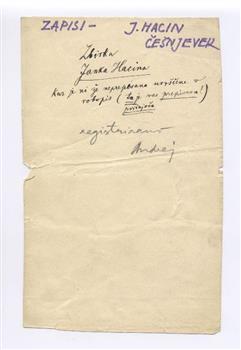 ZAPISI – J. HACIN
ČEŠNJEVEK
Zbirka
Janka Hacina
kar je ni še neprepisano uvrščeno v
rokopis (ta je vse prepisana!)
registrirano
Andrej